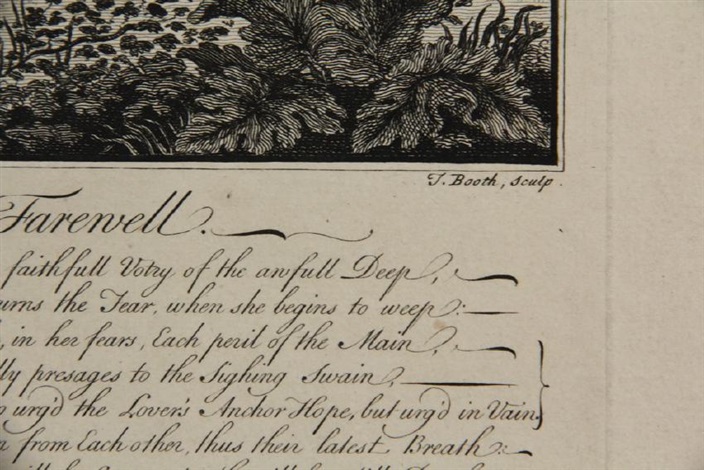 T. Booth, sculp.
Farewell.
faithfull Votry of the awfull Deep,
urns the Tear, when she begins to weep:
in her fears, Each peril of the Main,
lly presages to the Sighing Swain,
urg'd the Lover's Anchor Hope, but urg'd in Vain.
from Each other, thus their latest Breath: